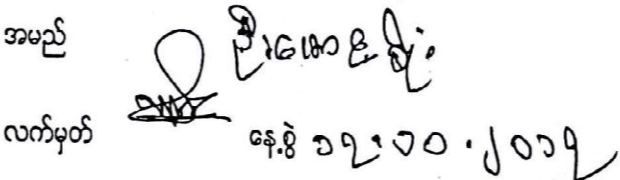 အမည် ဦး
လက်မှတ် နေ့စွဲ ၁၇.၁၀.၂၀၁၇